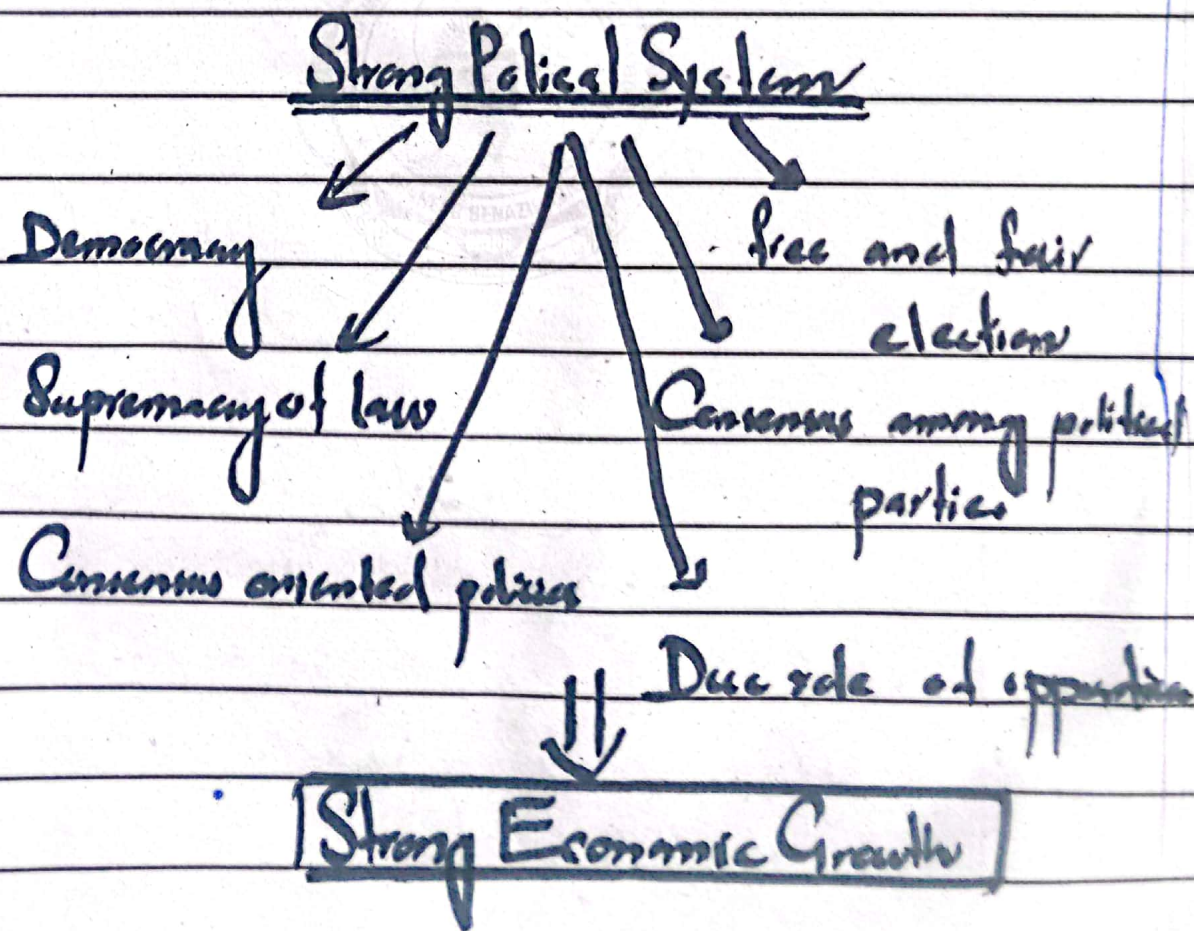 Strong Polical System
Democracy
free and fair
election
Supremacy of law
Consensus among political
parties
Consensus oriented policies
Due role of opposition
Strong Economic Growth